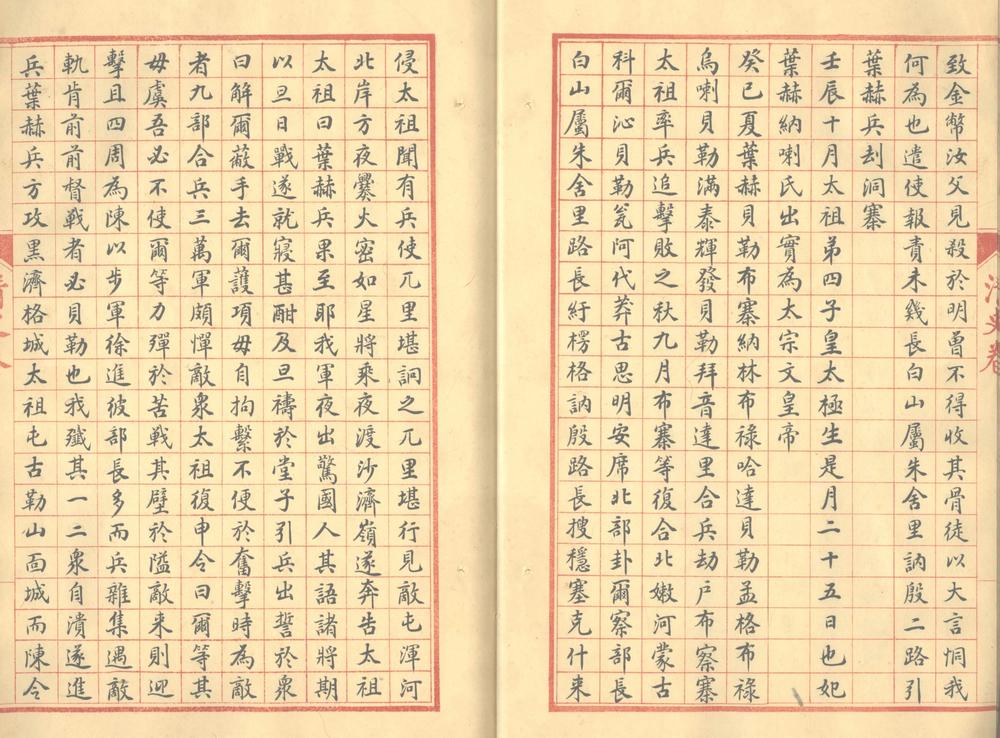 致金幣汝父見殺於明曾不得收其骨徒以大言恫我
何為也遣使報責未幾長白山屬朱舍里訥殷二路引
葉赫兵刦洞寨
壬辰十月太祖第四子皇太極生是月二十五日也妃
葉赫納喇氏出實為太宗文皇帝
癸巳夏葉赫貝勒布寨納林布祿哈達貝勒孟格布祿
烏喇貝勒滿泰輝發貝勒拜音達里合兵劫戶布察寨
太祖率兵追擊敗之秋九月布寨等復合北嫩河蒙古
科爾沁貝勒瓮阿代莽古思明安席北部卦爾察部長
白山屬朱舍里路長紆楞格訥殷路長搜穩塞克什来
侵太祖聞有兵使兀里堪詗之兀里堪行見敵屯渾河
北岸方夜爨火密如星將乘夜渡沙濟嶺遂奔告太祖
太祖曰葉赫兵果至耶我軍夜出驚國人其語諸將期
以旦日戰遂就寢甚酣及旦禱於堂子引兵出誓於衆
曰解爾蔽手去爾護項毋自拘繫不便於奮擊時為敵
者九部合兵三萬軍頗憚敵衆太祖復申令曰爾等其
毋虞吾必不使爾等力殫於苦戰其壁於隘敵来則迎
擊且四周為陳以步軍徐進彼部長多而兵雜集遇敵
軌肯前前督戰者必貝勒也我殲其一二衆自潰遂進
兵葉赫兵方攻黑濟格城太祖屯古勒山面城而陳令